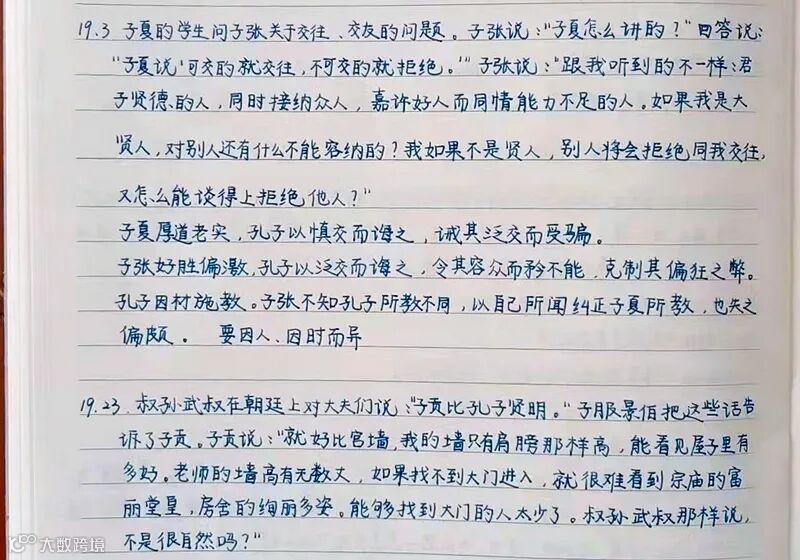 19.3 子夏的学生问子张关于交往、交友的问题。子张说："子夏怎么讲的？"回答说：
"子夏说'可交的就交往，不可交的就拒绝。'"子张说："跟我听到的不一样：君
子贤德的人，同时接纳众人，嘉许好人而同情能力不足的人。如果我是大
贤人，对别人还有什么不能容纳的？我如果不是贤人，别人将会拒绝同我交往，
又怎么能谈得上拒绝他人？"
子夏厚道老实，孔子以慎交而诲之，诫其泛交而受骗。
子张好胜偏激，孔子以泛交而诲之，令其容众而矜不能，克制其偏狂之弊。
孔子因材施教。子张不知孔子所教不同，以自己所闻纠正子夏所教，也失之
偏颇。 要因人、因时而异
19.23. 叔孙武叔在朝廷上对大夫们说："子贡比孔子贤明。"子服景伯把这些话告
诉了子贡。子贡说："就好比宫墙，我的墙只有肩膀那样高，能看见屋子里有
多好。老师的墙高有无数丈，如果找不到大门进入，就很难看到宗庙的富
丽堂皇，房舍的绚丽多姿。能够找到大门的人太少了。叔孙武叔那样说，
不是很自然吗？"
大数跨境